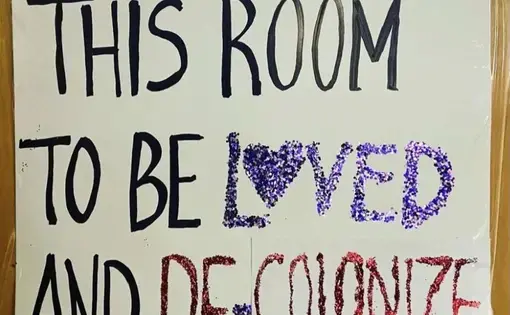 THIS ROOM
TO BE LOVED
AND DE-COLONIZE